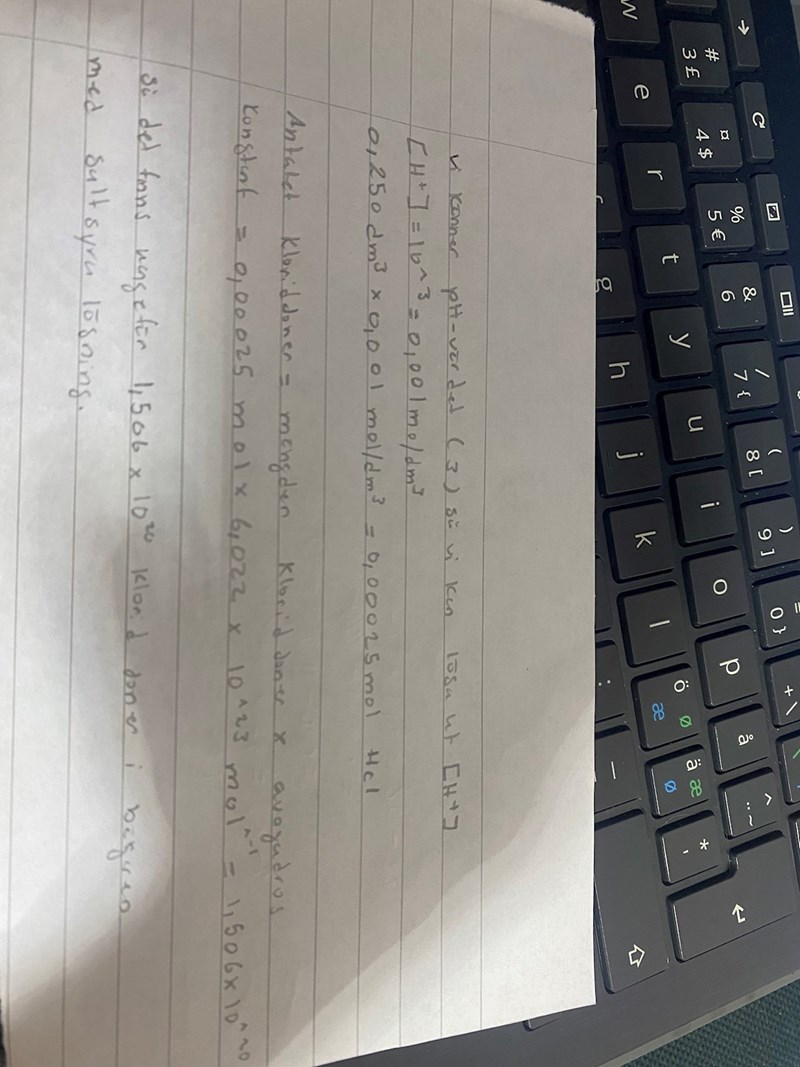 vi känner pH-värdet (3) så vi kan lösa ut [H+]
[H+] = 10^3 = 0,001 mol/dm³
0,250 dm³ × 0,001 mol/dm³ = 0,00025 mol Hcl
Antalet kloridjoner = mängden kloridjoner × avogadros
konstant = 0,00025 mol × 6,022 × 10^23 mol^-1 = 1,506×10^20
så det finns ungefär 1,506 × 10²⁰ kloridjoner i bägaren
med saltsyra lösning.
# 3 £
¤ 4 $
% 5 €
& 6
/ 7 {
( 8 [
) 9 ]
= 0 }
+ \
w e r t y u i o p å ^ ¨ ~
g h j k l ö ø æ ä æ ø * '
: _